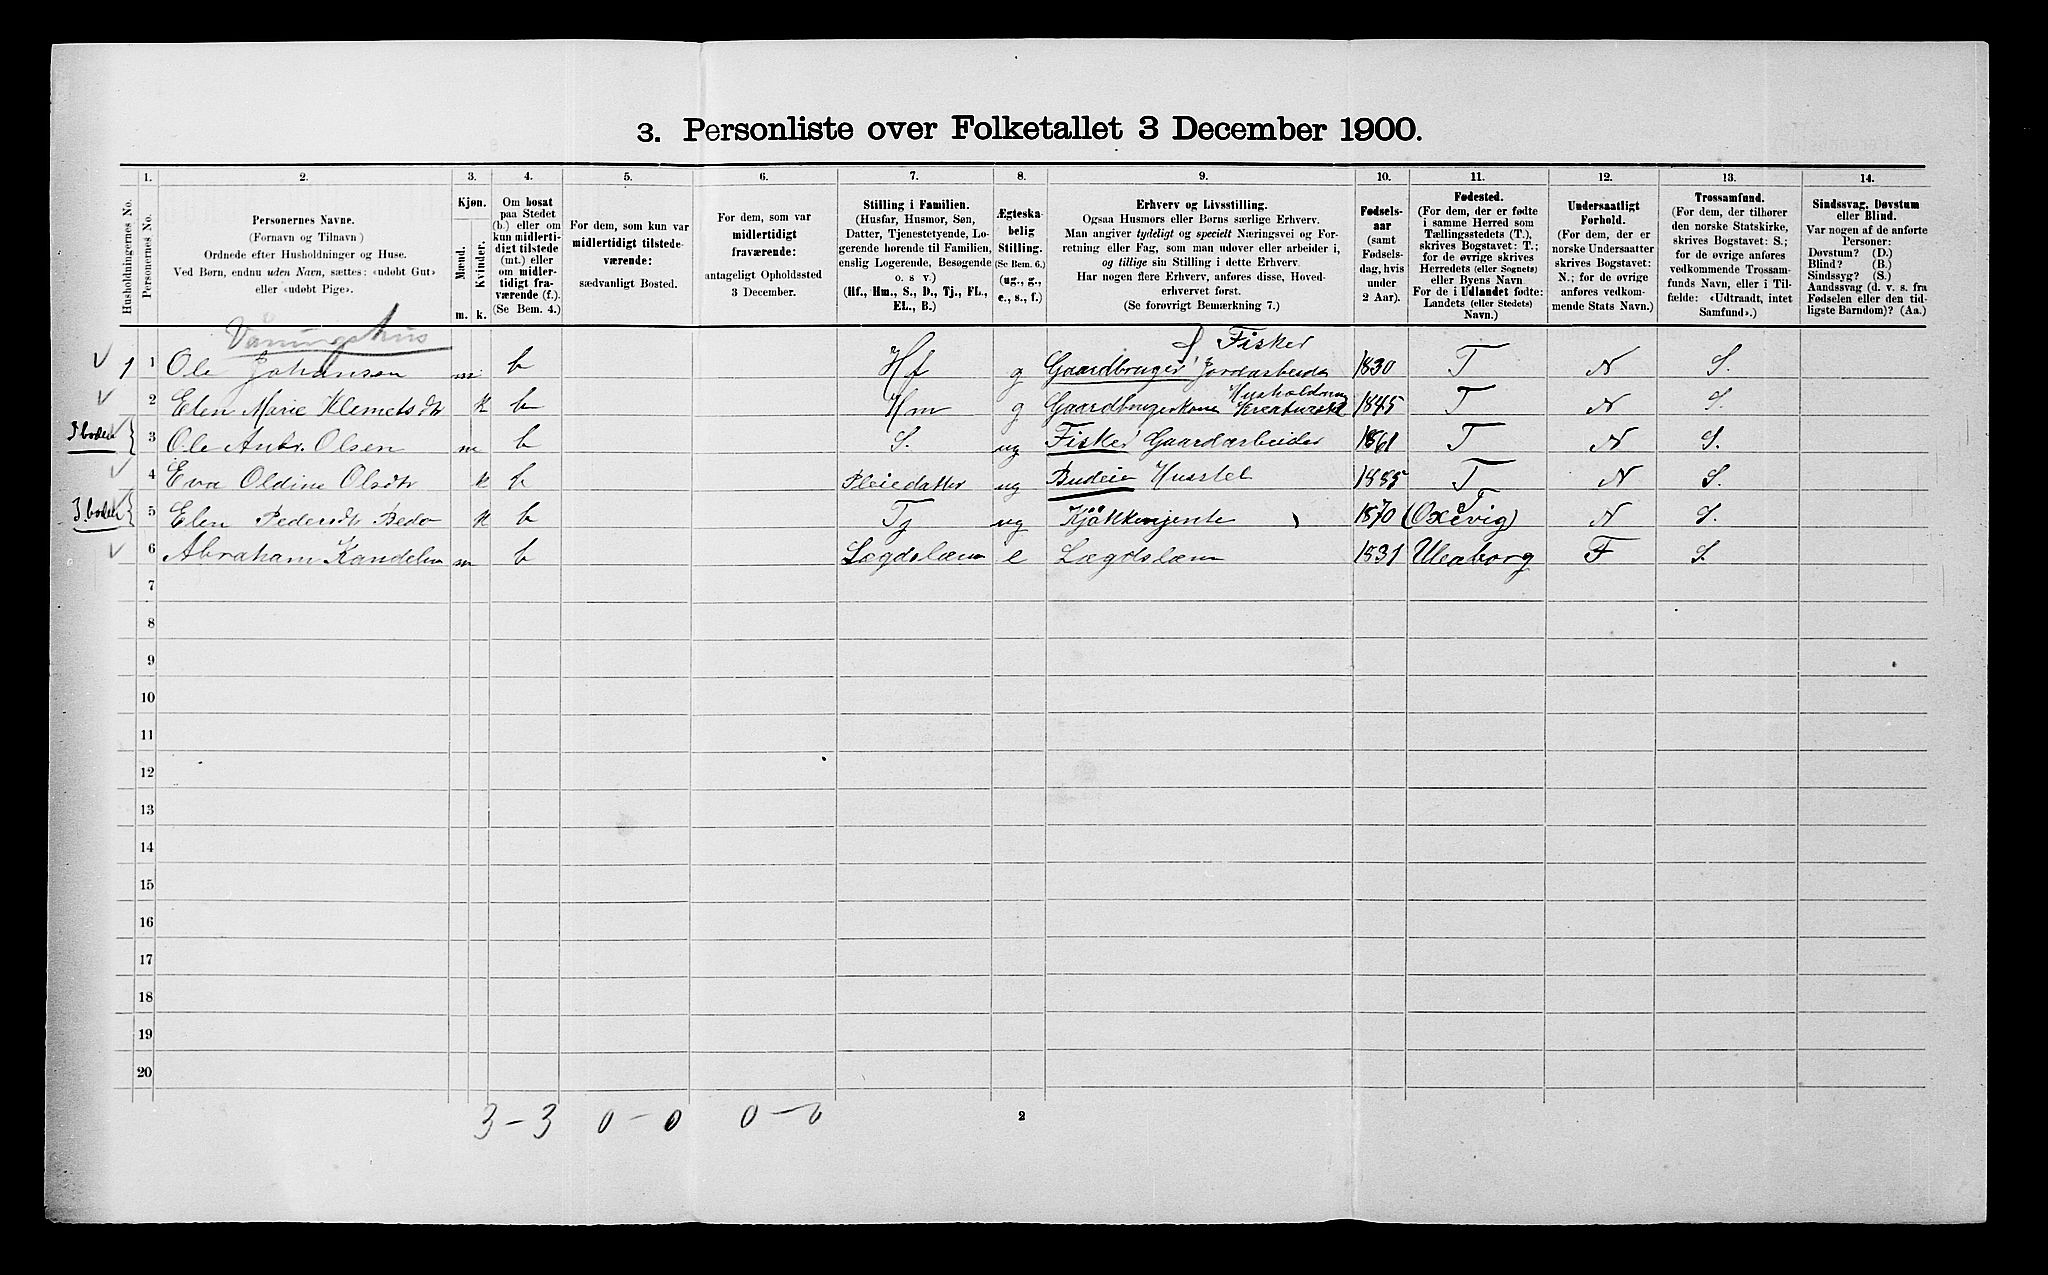 3. Personliste over Folketallet 3 December 1900.
Husholdningernes No.
1.
Personernes No.
2.
Personernes Navne.
(Fornavn og Tilnavn)
Ordnede efter Husholdninger og Huse.
Ved Børn, endnu uden Navn, sættes: «udøbt Gut»
eller «udøbt Pige».
3.
Kjøn.
Mænd.
Kvinder.
m. k.
4.
Om bosat
paa Stedet
(b.) eller om
kun midlerti-
digt tilstede
(mt.) eller
om midler-
tidigt fra-
værende (f.).
(Se Bem. 4.)
5.
For dem, som kun var
midlertidigt tilstede-
værende:
sædvanligt Bosted.
6.
For dem, som var
midlertidigt
fraværende:
antageligt Opholdssted
3 December.
7.
Stilling i Familien.
(Husfar, Husmor, Søn,
Datter, Tjenestetyende, Lo-
gerende hørende til Familien,
enslig Logerende, Besøgende
o. s v.)
(Hf., Hm., S., D., Tj., FL.,
EL., B.)
8.
Ægteska-
belig
Stilling.
(Se Bem. 6.)
(ug., g.,
e., s., f.)
9.
Erhverv og Livsstilling.
Ogsaa Husmors eller Børns særlige Erhverv.
Man angiver tydeligt og specielt Næringsvei og For-
retning eller Fag, som man udover eller arbeider i,
og tillige sin Stilling i dette Erhverv.
Har nogen flere Erhverv, anføres disse, Hoved-
erhvervet først.
(Se forøvrigt Bemærkning 7.)
10.
Fødsels-
aar
(samt
Fødsels-
dag, hvis
under
2 Aar).
11.
Fødested.
(For dem, der er fødte
i samme Herred som
Tællingsstedets (T.),
skrives Bogstavet: T.;
for de øvrige skrives
Herredets (eller Sognets)
eller Byens Navn
For de i Udlandet fødte:
Landets (eller Stedets)
Navn.)
12.
Undersaatligt
Forhold.
(For dem, der er
norske Undersaatter
skrives Bogstavet:
N.; for de øvrige
anføres vedkom-
mende Stats Navn.)
13.
Trossamfund.
(For dem, der tilhører
den norske Statskirke,
skrives Bogstavet: S.;
for de øvrige anføres
vedkommende Trossam-
funds Navn, eller i Til-
fælde: «Udtraadt, intet
Samfund».)
14.
Sindssvag, Døvstum
eller Blind.
Var nogen af de anførte
Personer:
Døvstum? (D.)
Blind? (B.)
Sindssyg? (S.)
Aandssvag (d. v. s. fra
Fødselen eller den tid-
ligste Barndom)? (Aa.)
Våningshus
1 1 Ole Johansen m b Hf g Gaardbruger Jordarbeider Fisker 1830 T N S.
2 Elen Marie Klemetsdtr k b Hm g Gaardbrugerkone Husholdning Kreaturstel 1845 T N S.
3 Ole Andr. Olsen m b S. ug Fisker Gaardarbeider 1861 T N S.
4 Eva Oldine Olsdtr k b Pleiedatter ug Budeie Husstel 1885 T N S.
5 Elen Pedersdtr Beda k b Tj ug Kjøkkenjente 1870 (Oxevig) T N S.
6 Abraham Kandelin m b Lægdslæm e Lægdslæm 1831 Uleaborg F S.
7
8
9
10
11
12
13
14
15
16
17
18
19
20
3 – 3 0 – 0 0 – 0
2